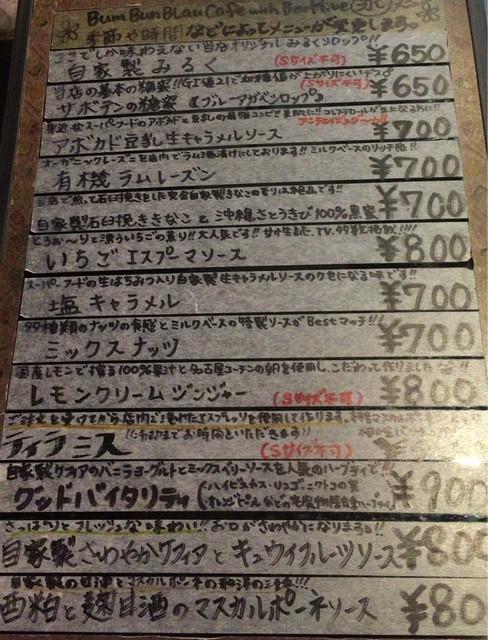 Bum Bun Blau Cafe with BeeHive
季節や時間などによってメニューが変更します。
ここでしか味わえない当店オリジナルみるくシロップ!!
自家製みるく (Sサイズ不可) ¥650
当店の基本の糖蜜!!GI値21で血糖値が上がりにくいデス
サボテンの糖蜜 ブルーアガベシロップ (Sサイズ不可) ¥650
アボカド豆乳生キャラメルソース ¥700
オーガニックレーズンを店内でラム酒漬けにしております!!ミルクベースのリッチ
有機ラムレーズン ¥700
自家製石臼挽ききなこと沖縄さとうきび100%黒蜜 ¥700
いちごエスプーマソース ¥800
スーパーフードの生はちみつ入り自家製生キャラメルソースのクセになる味です!!
塩キャラメル ¥700
ナッツの食感とミルクベースの特製ソースがBestマッチ!!
ミックスナッツ ¥700
国産レモンで搾る100%果汁と名古屋コーチンの卵を使用し、こだわって作りました
レモンクリームジンジャー (Sサイズ不可) ¥800
ご注文を受けてから店内で淹れたエスプレッソを使用して作ります。
ティラミス (Sサイズ不可)
自家製ケフィアのバニラヨーグルトとミックスベリーソースを人気のハーブティで!!
グッドバイタリティ ハイビスカス・リンゴ・ニワトコの実 ¥900
さっぱりとフレッシュな味わい!!お口がさわやかになりますョ!!
自家製さわやかケフィアとキュウイフルーツソース ¥800
自家製の甘酒とマスカルポーネの和洋の
酒粕と麹甘酒のマスカルポーネソース ¥80